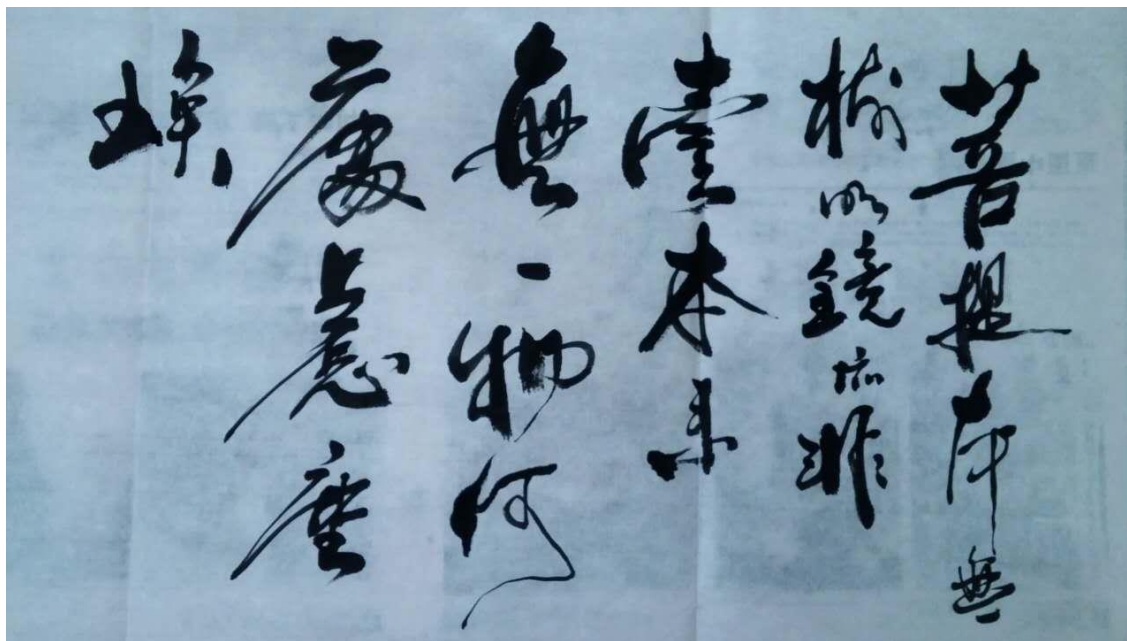 菩提本無
樹明鏡亦非
臺本來
無一物何
處惹塵
埃